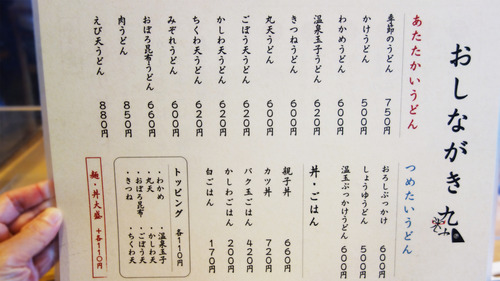 おしながき
九
あたたかいうどん
季節のうどん 750
かけうどん 500
わかめうどん 600
温泉玉子うどん 620
きつねうどん 600
丸天うどん 600
ごぼう天うどん 620
かしわ天うどん 620
ちくわ天うどん 620
みぞれうどん 600
おぼろ昆布うどん 660円
肉うどん 850円
えび天うどん 880円
つめたいうどん
おろしぶっかけ 600
しょうゆうどん 500
温玉ぶっかけうどん 600円
丼・ごはん
親子丼 660円
カツ丼 720円
バク玉ごはん 420円
かしわごはん 200円
白ごはん 170円
トッピング 各110円
・わかめ ・温泉玉子
・丸天 ・かしわ天
・おぼろ昆布 ・ごぼう天
・きつね ・ちくわ天
麺・丼大盛 +各110円